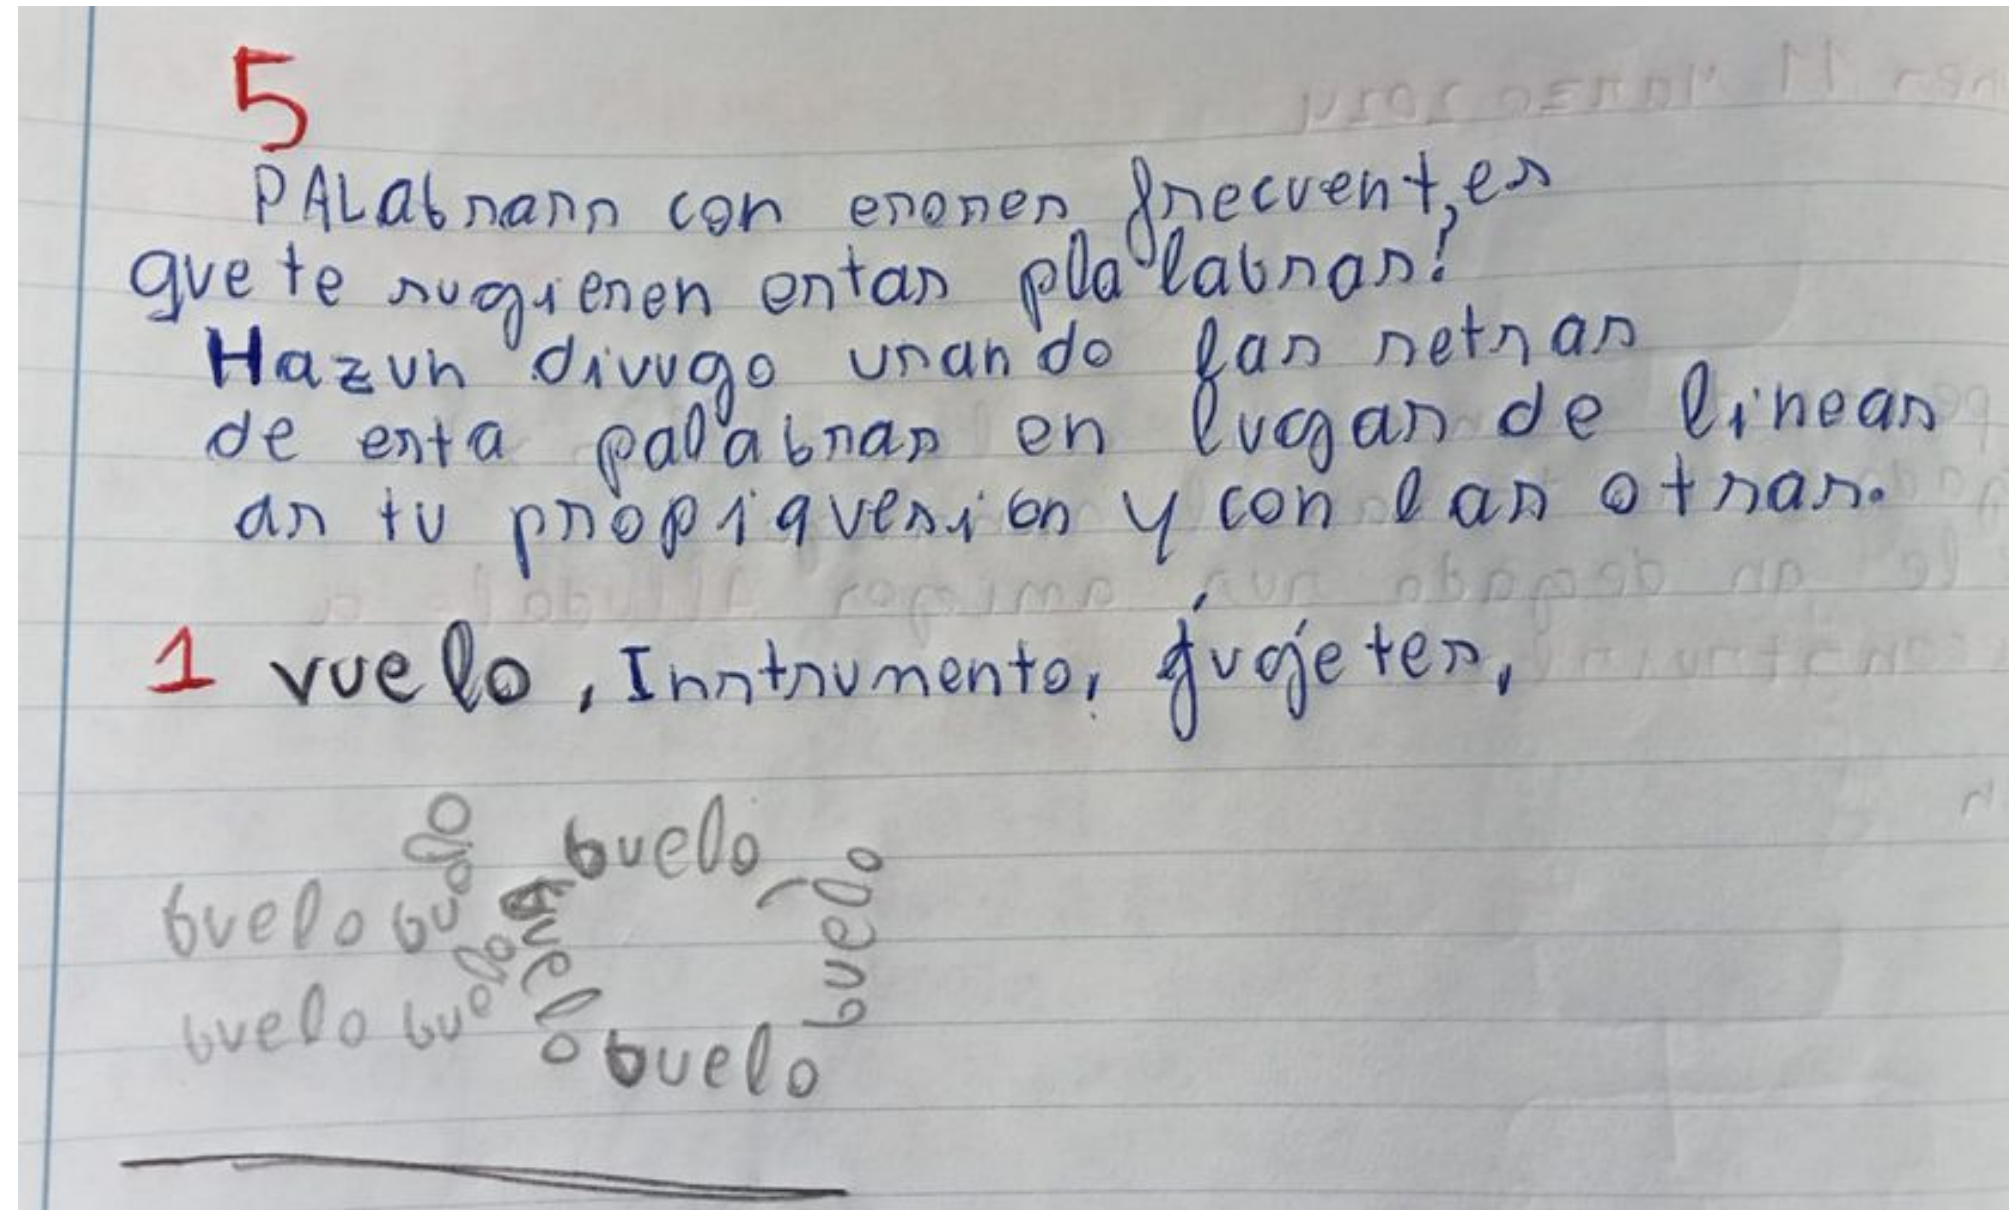 5
PALabrars con erores frecuentes
que te sugieren estas pla labras?
Haz un divugo usando las retras
de esta palabras en lugar de lineas
as tu propia version y con las otras.
1 vuelo, Instrumento, jugetes,
buelo
buelo
buelo
buelo
buelo
buelo
buelo
buelo
buelo